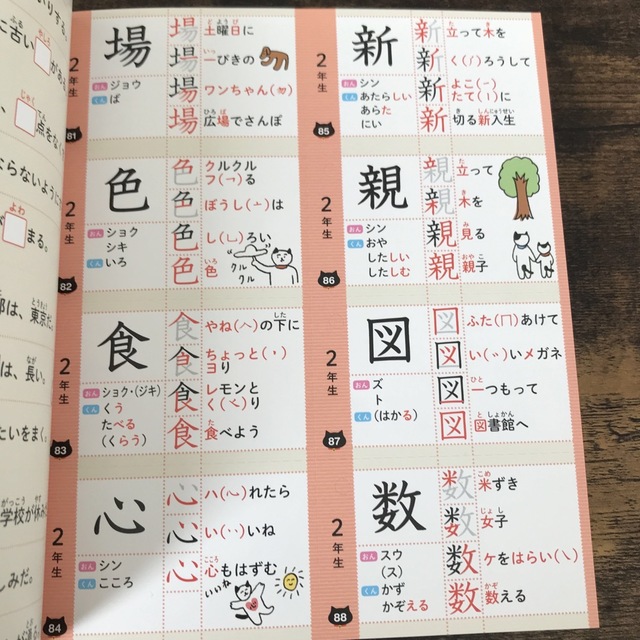 2年生
81
場
おん ジョウ
くん ば
場 土曜日に
場 一ぴきの
場 ワンちゃん(勿)
場 広場でさんぽ
2年生
82
色
おん ショク
シキ
くん いろ
色 クルクル
フ(㇇)る
色 ぼうし(一)は
色 し(乚)ろい
色 色
クルクル
2年生
83
食
おん ショク・(ジキ)
くん くう
たべる
(くらう)
食 やね(𠆢)の下に
食 ちょっと(丶)
ヨり
食 レモンと
く(く)り
食 食べよう
2年生
84
心
おん シン
くん こころ
心 ハ(心)れたら
心 い(丶丶)いね
心 心もはずむ
いいね
2年生
85
新
おん シン
くん あたらしい
あらた
にい
新 立って木を
新 く(⺁)ろうして
新 よこ(一)
たて(丨)に
新 切る新入生
2年生
86
親
おん シン
くん おや
したしい
したしむ
親 立って
親 木を
親 見る
親 親子
2年生
87
図
おん ズ
ト
くん (はかる)
図 ふた(冂)あけて
図 い(丶丶)いメガネ
図 一つもって
図 図書館へ
2年生
88
数
おん スウ
(ス)
くん かず
かぞえる
数 米ずき
数 女子
数 ケをはらい(㇏)
数 数える